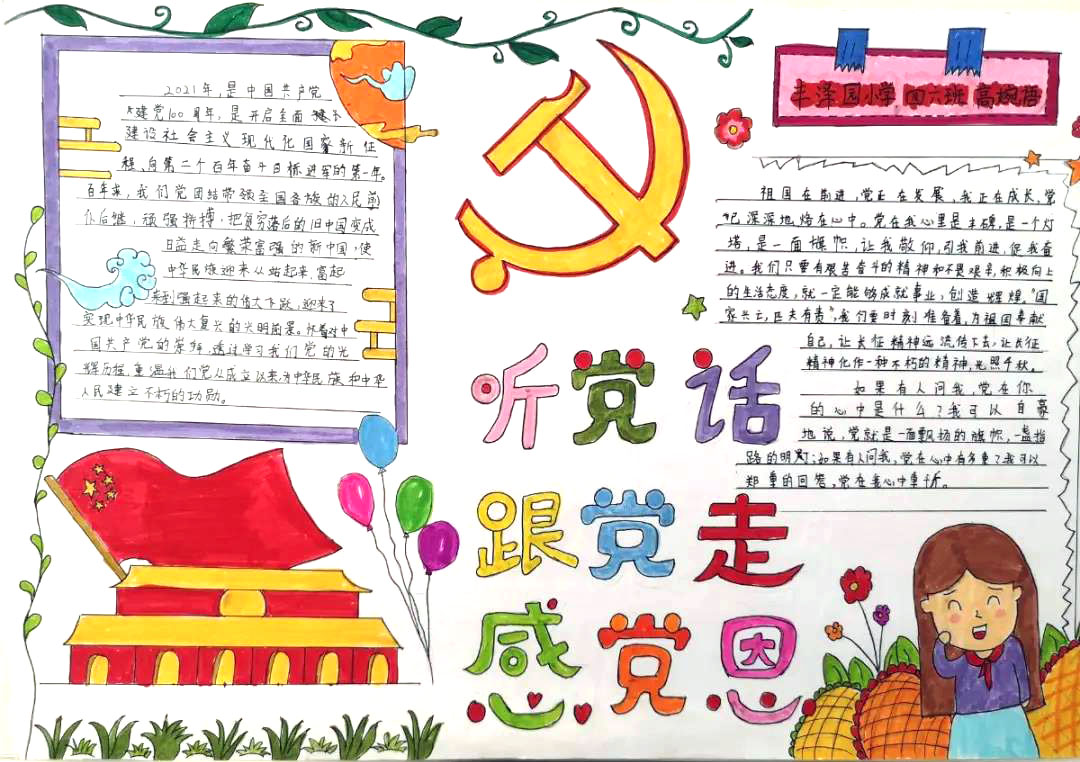 2021年,是中国共产党
建党100周年,是开启全面
建设社会主义现代化国家新征
程、向第二个百年奋斗目标进军的第一年。
百年来,我们党团结带领全国各族的人民前
仆后继,顽强拼搏,把贫穷落后的旧中国变成
日益走向繁荣富强的新中国,使
中华民族迎来从站起来、富起
来到强起来的伟大飞跃,迎来了
实现中华民族伟大复兴的光明前景。怀着对中
国共产党的崇拜,透过学习我们党的光
辉历程,重温我们党从成立以来,为中华民族和中华
人民建立不朽的功勋。
听党话
跟党走
感党恩
丰泽园小学 四六班 高婉
祖国在前进,党正在发展,我正在成长,党
深深地烙在心中。党在我心里是丰碑,是一个灯
塔,是一面旗帜,让我敬仰,引我前进,促我奋
进。我们只要有艰苦奋斗的精神和不畏艰辛,积极向上
的生活态度,就一定能够成就事业,创造辉煌,"国
家兴亡,匹夫有责",我们要时刻准备着,为祖国奉献
自己,让长征精神远流传下去,让长征
精神化作一种不朽的精神,光照千秋。
如果有人问我,党在你
的心中是什么?我可以自豪
地说,党就是一面飘扬的旗帜,一盏指
路的明灯;如果有人问我,党在心中有多重?我可以
郑重的回答,党在我心中重千斤。